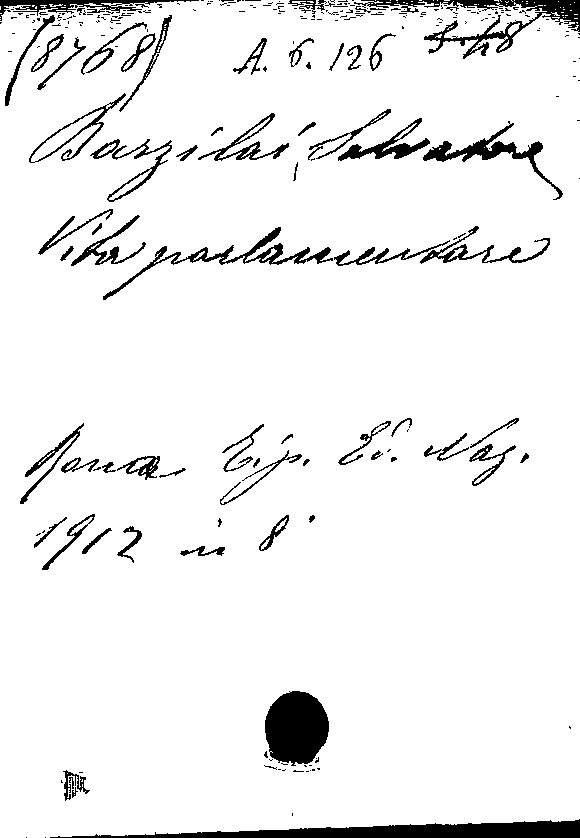 (8768) A. 6. 126
Barzilai, Salvatore
Vita parlamentare
Roma Tip. Ed. Naz.
1912 in 8°